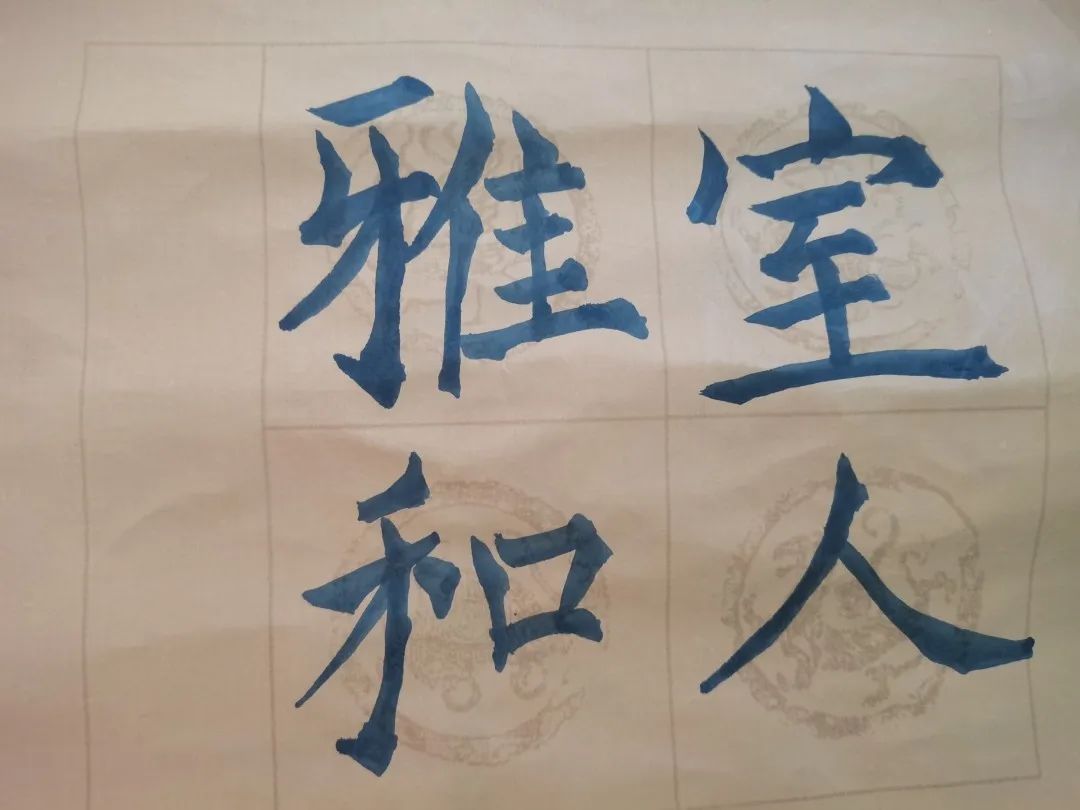 室人
雅和